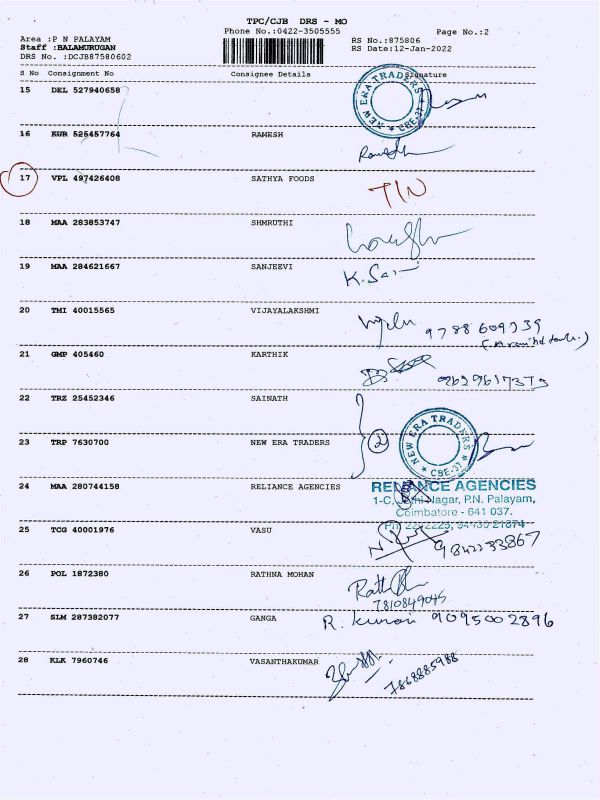 TPC/CJB DRS - MO
Phone No.:0422-3505555
Page No.:2
Area :P N PALAYAM
RS No.:875806
Staff :BALAMURUGAN
RS Date:12-Jan-2022
DRS No. :DCJB87580602
S No Consignment No Consignee Details Signature
15 DEL 527940658
NEW ERA TRADERS
* CBE-37 *
16 KUR 525457764 RAMESH
17 VPL 497426408 SATHYA FOODS
18 MAA 283853747 SHMRUTHI
19 MAA 284621667 SANJEEVI
20 TMI 40015565 VIJAYALAKSHMI
21 GMP 405460 KARTHIK
22 TRZ 25452346 SAINATH
2
23 TRP 7630700 NEW ERA TRADERS
NEW ERA TRADERS
* CBE-37 *
24 MAA 280744158 RELIANCE AGENCIES
RELIANCE AGENCIES
Nagar, P.N. Palayam,
Coimbatore - 641 037.
25 TCG 40001976 VASU
9842233867
26 POL 1872380 RATHNA MOHAN
7810849045
27 SLM 287382077 GANGA
R. kumari 9095002896
28 KLK 7960746 VASANTHAKUMAR
7868885988